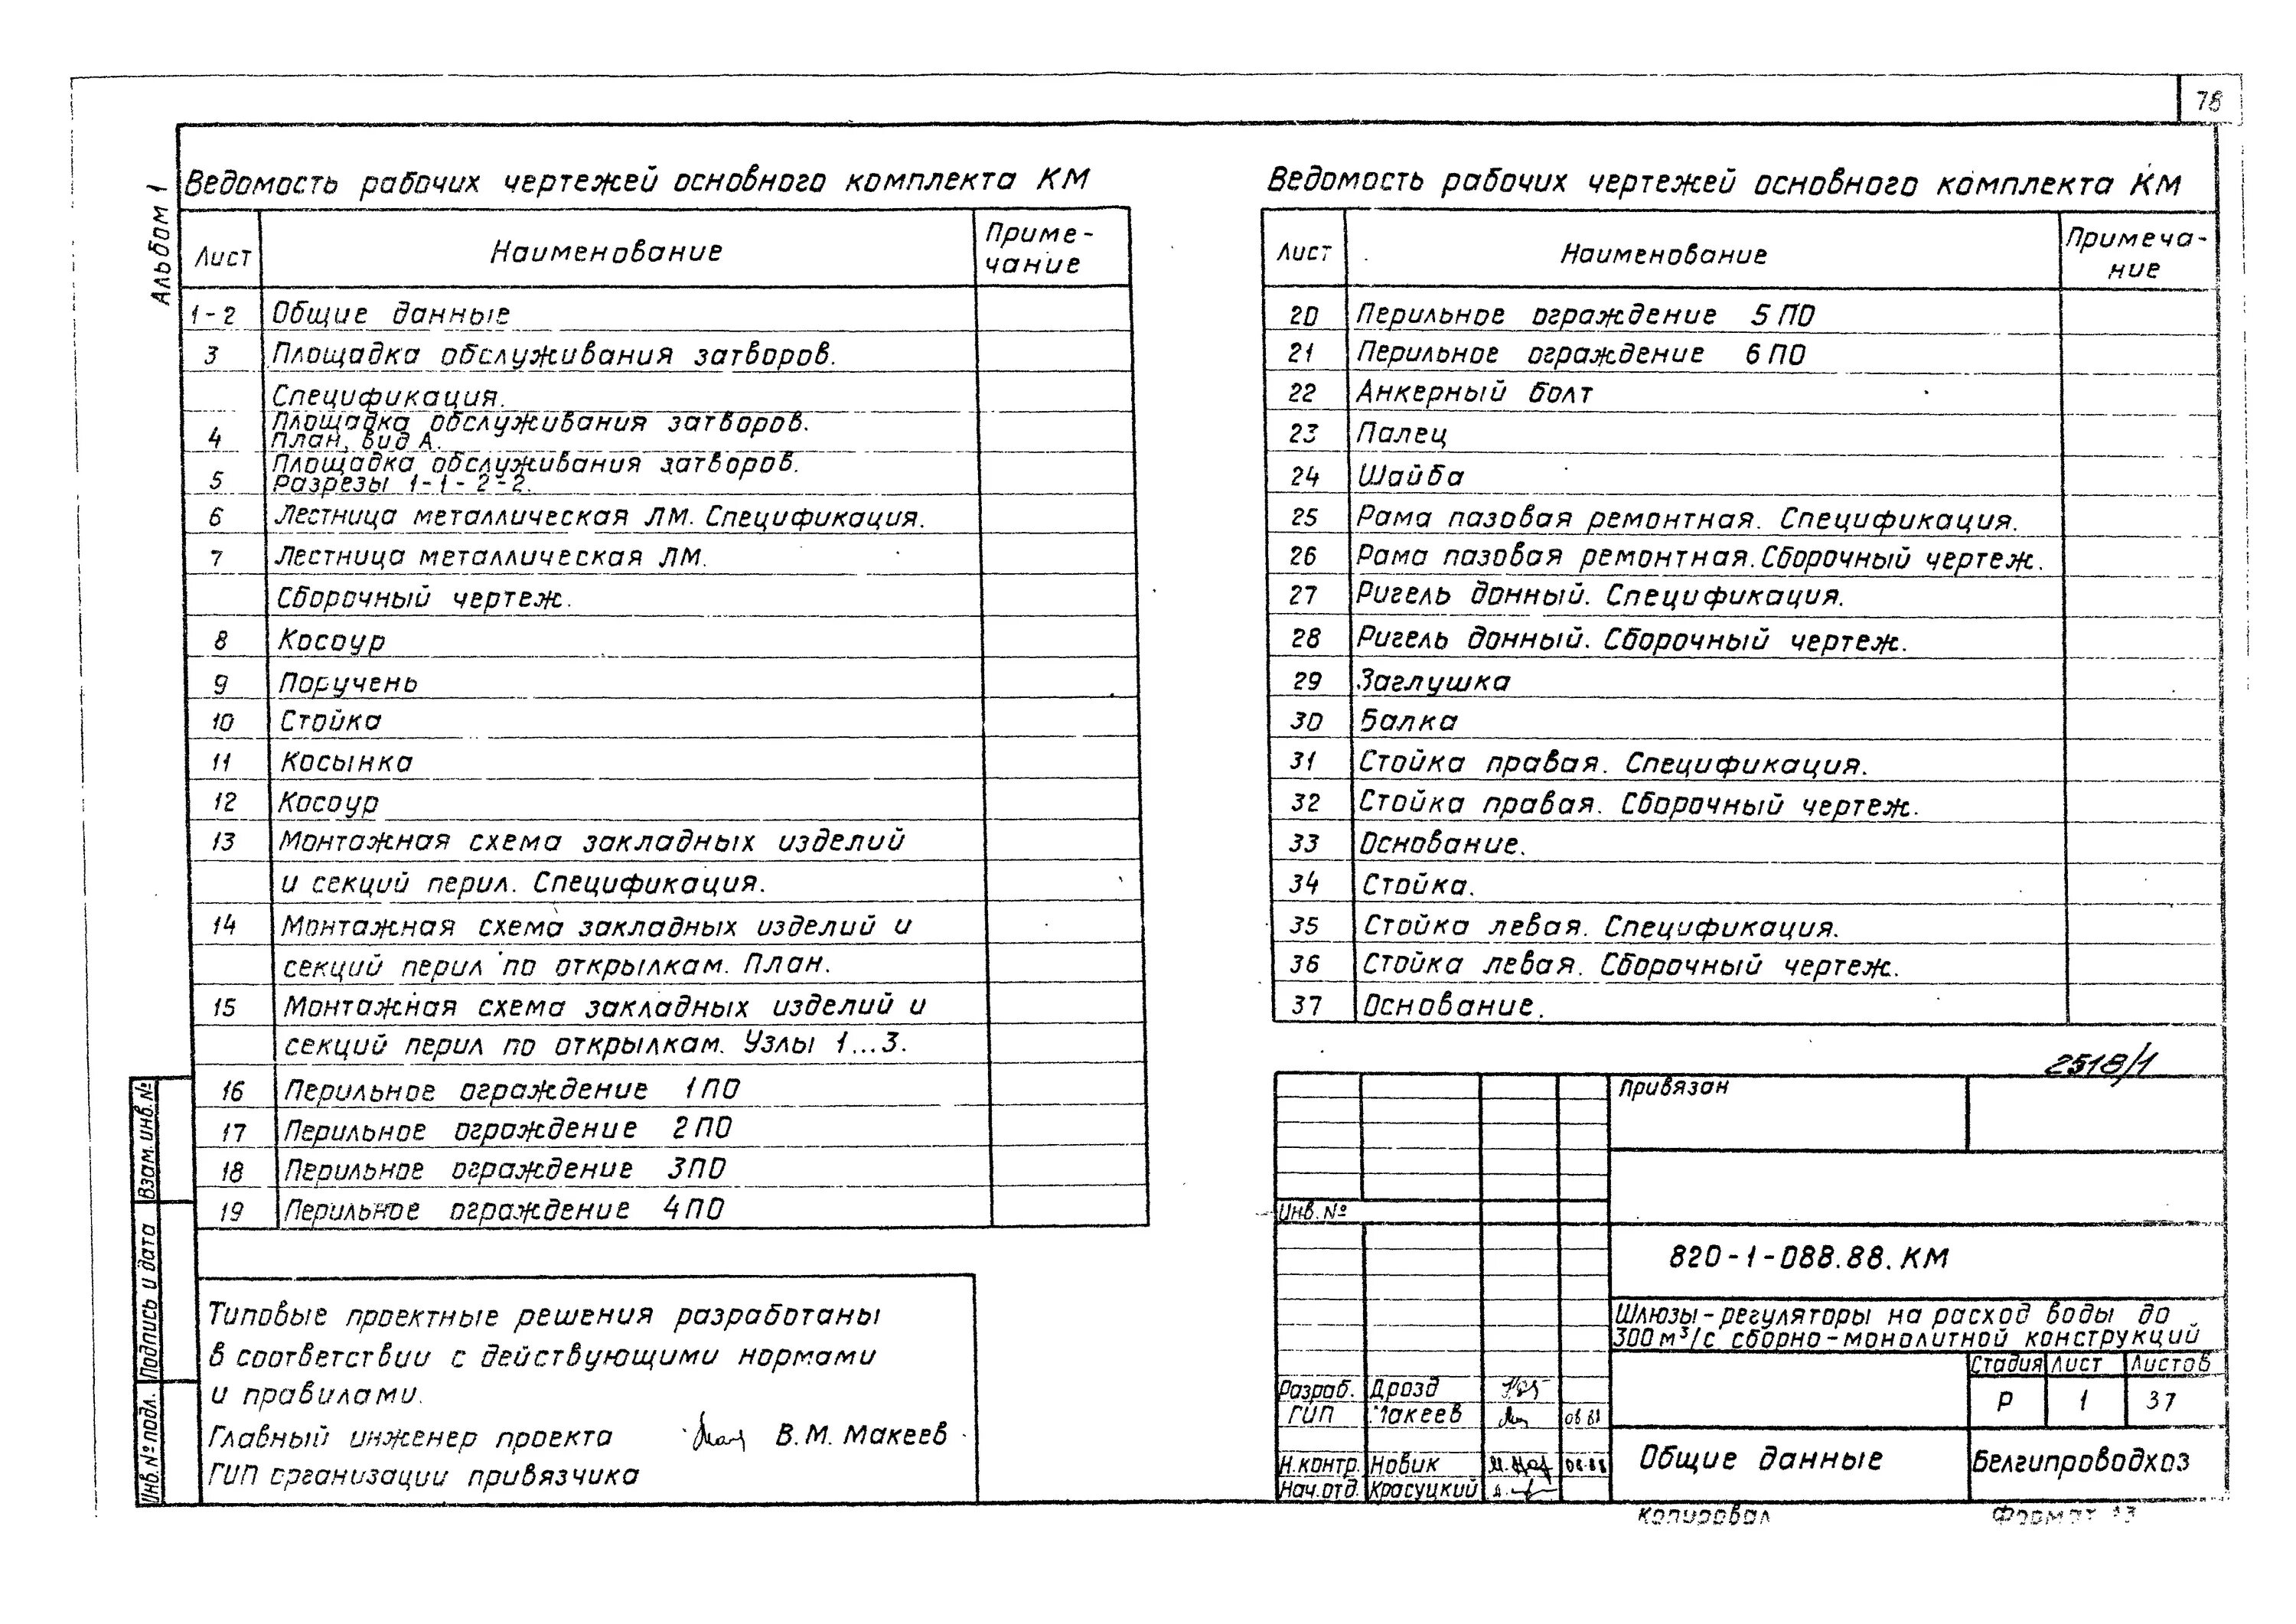 78
Альбом 1
Ведомость рабочих чертежей основного комплекта КМ
Лист Наименование Приме-
чание
1-2 Общие данные
3 Площадка обслуживания затворов.
Спецификация.
4 Площадка обслуживания затворов.
План, вид А.
5 Площадка обслуживания затворов.
Разрезы 1-1 - 2-2.
6 Лестница металлическая ЛМ. Спецификация.
7 Лестница металлическая ЛМ.
Сборочный чертеж.
8 Косоур
9 Поручень
10 Стойка
11 Косынка
12 Косоур
13 Монтажная схема закладных изделий
и секций перил. Спецификация.
14 Монтажная схема закладных изделий и
секций перил по открылкам. План.
15 Монтажная схема закладных изделий и
секций перил по открылкам. Узлы 1...3.
16 Перильное ограждение 1ПО
17 Перильное ограждение 2ПО
18 Перильное ограждение 3ПО
19 Перильное ограждение 4ПО
Ведомость рабочих чертежей основного комплекта КМ
Лист Наименование Примеча-
ние
20 Перильное ограждение 5ПО
21 Перильное ограждение 6ПО
22 Анкерный болт
23 Палец
24 Шайба
25 Рама пазовая ремонтная. Спецификация.
26 Рама пазовая ремонтная. Сборочный чертеж.
27 Ригель донный. Спецификация.
28 Ригель донный. Сборочный чертеж.
29 Заглушка
30 Балка
31 Стойка правая. Спецификация.
32 Стойка правая. Сборочный чертеж.
33 Основание.
34 Стойка.
35 Стойка левая. Спецификация.
36 Стойка левая. Сборочный чертеж.
37 Основание.
Типовые проектные решения разработаны
в соответствии с действующими нормами
и правилами.
Главный инженер проекта В.М. Макеев
ГИП организации привязчика
Взам. инв. №
Подпись и дата
Инв. № подл.
2518/1
Привязан
Инв. №
820-1-088.88. КМ
Шлюзы-регуляторы на расход воды до
300 м³/с сборно-монолитной конструкций
Стадия Лист Листов
Р 1 37
Разраб. Дрозд
ГИП Макеев
Н.контр. Новик 08.88
Нач.отд. Красуцкий
Общие данные
Белгипроводхоз
Копировал
Формат